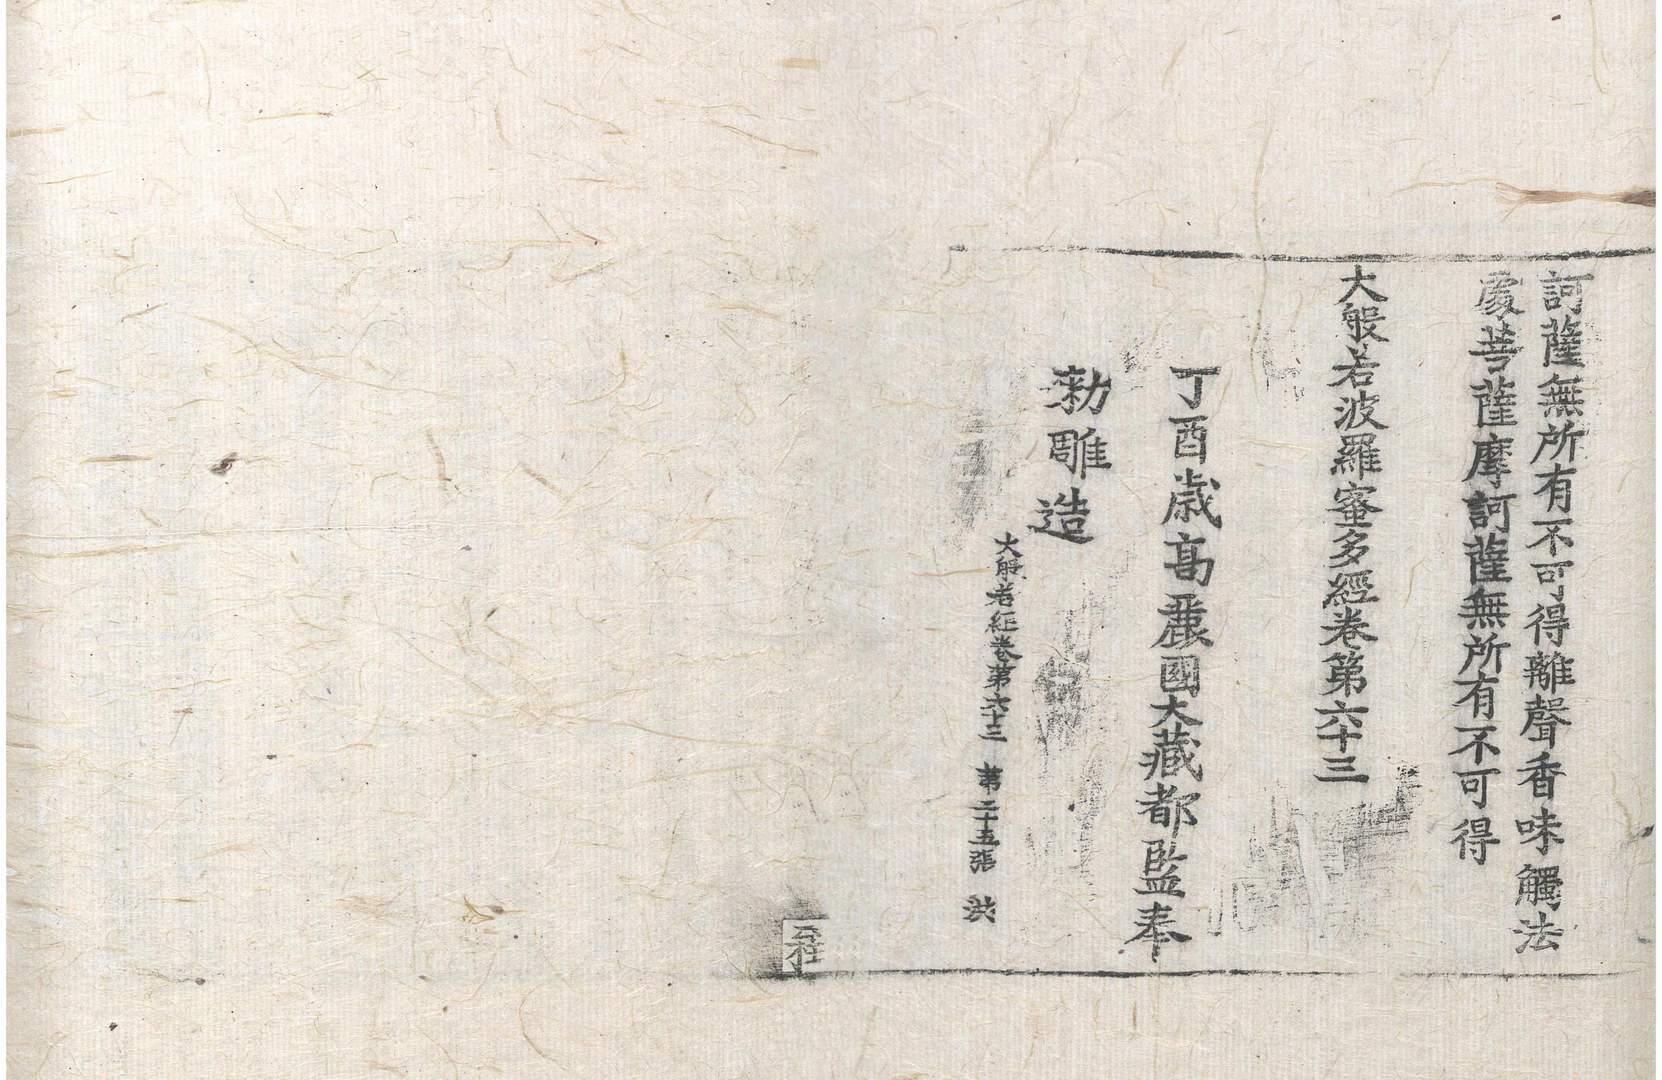 訶薩無所有不可得離聲香味觸法
處菩薩摩訶薩無所有不可得
大般若波羅蜜多經卷第六十三
丁酉歲高麗國大藏都監奉
勅雕造
大般若經卷第六十三 第二十五張 洪